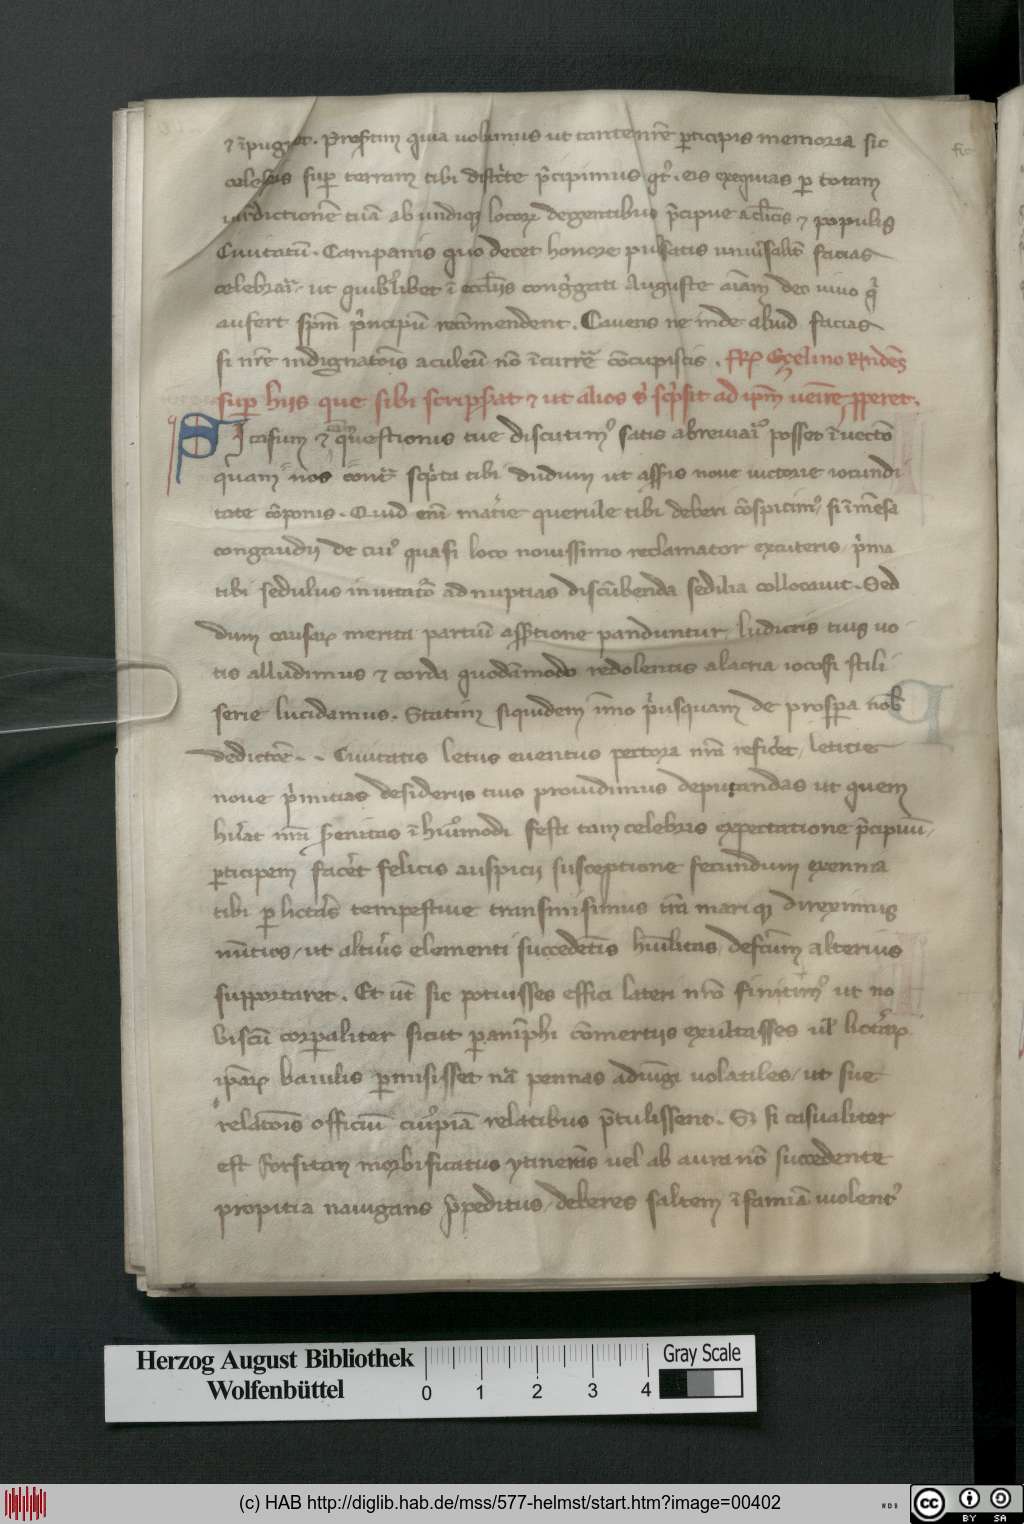 ⁊ īpugnet. Presertim quia uolumus ut tante nr̄e p̄ticipis memoria sic
sic
celebris sup terram tibi districte p̄cipimus qͭ. eis exequias p totam
iurisdictionē tuā ab undiqꝫ locoꝝ degentibus p̄cipue a cl̄icis ⁊ populis
Ciuitatū. Campanis quo decet honore pulsatis uniūsalit̄ facias
celebrari, ut quibuslibet ī eccliis cong̑gati Auguste aīam deo uiuo q̇
aufert sp̄m p̑ncipū recōmendent. Cauens ne inde aliud facias
si nr̄e indignatōis aculeū nō īcurrē cōcupiscis. FRꝰ Eçelino Rn̄dēs
sup hiis que sibi scripserat ⁊ ut alios ei sc̑psit ad ip̄m ueīre pperet.
SI casum ⁊ questionis tue discutimꝰ satis abreuiaꝰ posset īuectō
quam nos cont̄ sc̑pta tibi dudum ut assis noue uictorie iocundi
tate cōponis. Quid enī mat̑ie querule tibi deberi cōspicimꝰ, si īmēsa
congaudij de cuiꝰ quasi loco nouissimo reclamator excuteris, p̑ma
tibi sedulus inuitatō ad nuptias discūbenda sedilia collocauit. Sed
dum causaꝝ merita partiū assertione panduntur, ludicris tuis uo
tis alludimus ⁊ corda quodāmodo redolentis alacria iocosi stili
serie lucidamus. Statim siquidem īmo p̑usquam de prospa nob
dedictōe . . Ciuitatis letus euentus pectora nr̄a reficeret, letitie
noue p̑mitias desideriis tuis prouidimus deputandas ut quem
hūat nr̄i serenitas ī huꝰmodi festi tam celebris expectatione p̄cipuū,
p̄ticipem facēt felicis auspicij susceptione secundum exennia
tibi p lictēas tempestiue transmisimus tr̄a mariqꝫ direximus
nūtios, ut altiūs elementi succedētis humilitas defectum alterius
supportaret. Et ut̄ sic potuisses effici lateri nr̄o finitimꝰ ut no
biscū corpaliter sicut paranīphi cōmertiis exultasses ul' lict̄aꝝ
ip̄aꝝ baiulis pmisisset nā pennas adiūgi uolatiles, ut sue
relatōis officiū cuꝰpiā relatibus p̄tulissent. Sꝫ si casualiter
est forsitan morbificatus ytinerās uel ab aura nō succedente
propitia nauigans p̄peditus, deberes saltem īfamiā uiolentꝰ
Herzog August Bibliothek
Wolfenbüttel
0 1 2 3 4
Gray Scale
(c) HAB http://diglib.hab.de/mss/577-helmst/start.htm?image=00402
WDB
cc BY SA